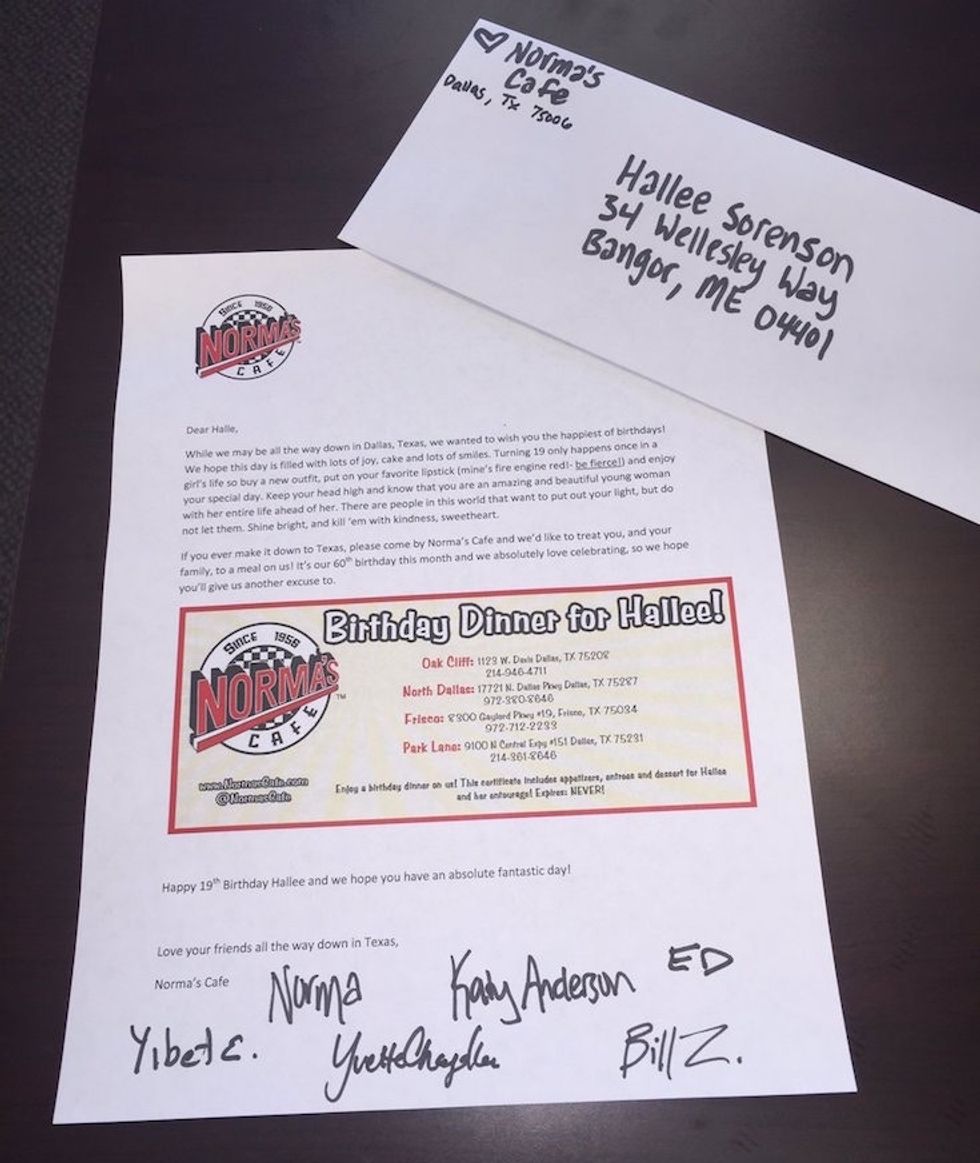 ♡ Norma's
Cafe
Dallas, Tx 75006
Hallee Sorenson
34 Wellesley Way
Bangor, ME 04401
SINCE 1956
NORMA'S
CAFE
Dear Halle,
While we may be all the way down in Dallas, Texas, we wanted to wish you the happiest of birthdays!
We hope this day is filled with lots of joy, cake and lots of smiles. Turning 19 only happens once in a
girl's life so buy a new outfit, put on your favorite lipstick (mine's fire engine red!- be fierce!) and enjoy
your special day. Keep your head high and know that you are an amazing and beautiful young woman
with her entire life ahead of her. There are people in this world that want to put out your light, but do
not let them. Shine bright, and kill 'em with kindness, sweetheart.
If you ever make it down to Texas, please come by Norma's Cafe and we'd like to treat you, and your
family, to a meal on us! It's our 60th birthday this month and we absolutely love celebrating, so we hope
you'll give us another excuse to.
Birthday Dinner for Hallee!
SINCE 1956
NORMA'S™
CAFE
www.NormasCafe.com
@NormasCafe
Oak Cliff: 1123 W. Davis Dallas, TX 75208
214-946-4711
North Dallas: 17721 N. Dallas Pkwy Dallas, TX 75287
972-380-8646
Frisco: 8300 Gaylord Pkwy #19, Frisco, TX 75034
972-712-2233
Park Lane: 9100 N Central Expy #151 Dallas, TX 75231
214-361-8646
Enjoy a birthday dinner on us! This certificate includes appetizers, entrees and dessert for Hallee
and her entourage! Expires: NEVER!
Happy 19th Birthday Hallee and we hope you have an absolute fantastic day!
Love your friends all the way down in Texas,
Norma's Cafe
Norma
Anderson
ED
Yibet E.
Yvette
Bill Z.